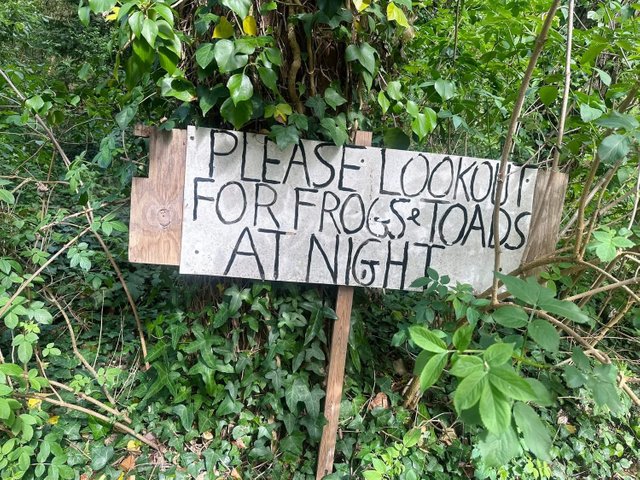 PLEASE LOOKOUT
FOR FROGS & TOADS
AT NIGHT